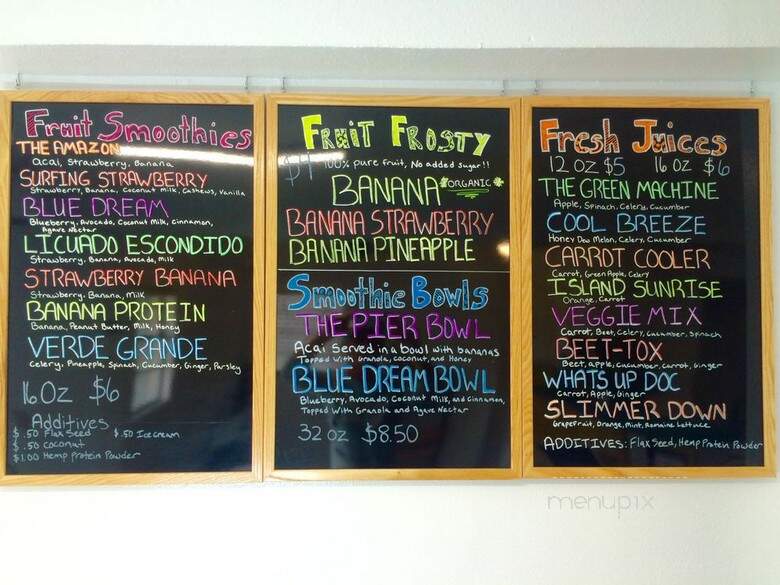 Fruit Smoothies
THE AMAZON
Acai, Strawberry, Banana
SURFING STRAWBERRY
Strawberry, Banana, Coconut Milk, Cashews, Vanilla
BLUE DREAM
Blueberry, Avocado, Coconut Milk, Cinnamon,
Agave Nectar
LICUADO ESCONDIDO
Strawberry, Banana, Avocado, Milk
STRAWBERRY BANANA
Strawberry, Banana, Milk
BANANA PROTEIN
Banana, Peanut Butter, Milk, Honey
VERDE GRANDE
Celery, Pineapple, Spinach, Cucumber, Ginger, Parsley
16 Oz $6
Additives
$.50 Flax Seed $.50 Ice cream
$.50 Coconut
$1.00 Hemp Protein Powder
FRUIT FROSTY
$4 100% pure fruit, No added sugar!!
BANANA *ORGANIC*
BANANA STRAWBERRY
BANANA PINEAPPLE
Smoothie Bowls
THE PIER BOWL
Acai Served in a bowl with bananas
Topped with Granola, Coconut, and Honey
BLUE DREAM BOWL
Blueberry, Avocado, Coconut Milk, and Cinnamon,
Topped With Granola and Agave Nectar
32 oz $8.50
Fresh Juices
12 OZ $5 16 OZ $6
THE GREEN MACHINE
Apple, Spinach, Celery, Cucumber
COOL BREEZE
Honey Dew Melon, Celery, Cucumber
CARROT COOLER
Carrot, Green Apple, Celery
ISLAND SUNRISE
Orange, Carrot
VEGGIE MIX
Carrot, Beet, Celery, Cucumber, Spinach
BEET-TOX
Beet, apple, Cucumber, Carrot, Ginger
WHATS UP DOC
Carrot, Apple, Ginger
SLIMMER DOWN
Grapefruit, Orange, Mint, Romaine Lettuce
ADDITIVES: Flax Seed, Hemp Protein Powder
menupix